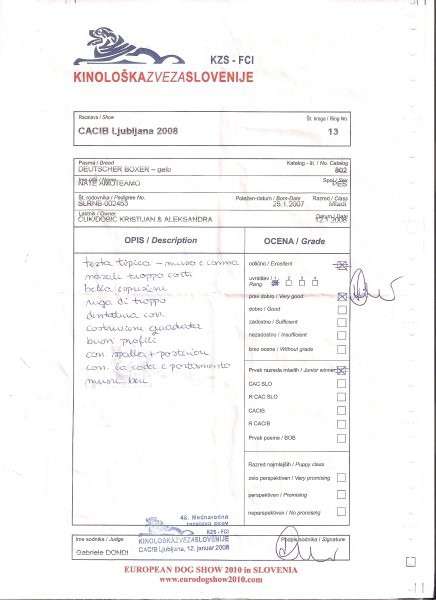 KZS - FCI
KINOLOŠKAZVEZASLOVENIJE
Razstava / Show
Št. kroga / Ring No.
CACIB Ljubljana 2008
13
Pasma / Breed
Katalog - št. / No. Catalog
DEUTSCHER BOXER – gelb
802
Ime psa / Name
Spol / Sex
NATE AMOTEAMO
PES
Št. rodovnika / Pedigree No.
Poležen-datum / Born-Date
Razred / Class
SLRNB-002453
25.1.2007
Mladi
Lastnik / Owner
Datum / Date
CUK/DOBIC KRISTIJAN & ALEKSANDRA
12.1.2008
OPIS / Description
OCENA / Grade
testa tipica - muso e canna
nasali troppo corti
bella espressione
ruga di troppo
dentatura con.
costruzione quadrata
buoni profili
con. spalla + posteriori
con. la coda e portamento
muove bene
odlično / Excellent
uvrstitev / Rang
1 2 3 4
prav dobro / Very good
dobro / Good
zadostno / Sufficient
nezadostno / Insufficient
brez ocene / Without grade
Prvak razreda mladih / Junior winner
CAC SLO
R CAC SLO
CACIB
R CACIB
Prvak pasme / BOB
Razred najmlajših / Puppy class
zelo perspektiven / Very promising
perspektiven / Promising
neperspektiven / No promising
48. Mednarodna
razstava psov
KZS-FCI
KINOLOŠKAZVEZASLOVENIJE
CACIB Ljubljana, 12. januar 2008
Ime sodnika / Judge
Podpis sodnika / Signature
Gabriele DONDI
EUROPEAN DOG SHOW 2010 in SLOVENIA
www.eurodogshow2010.com